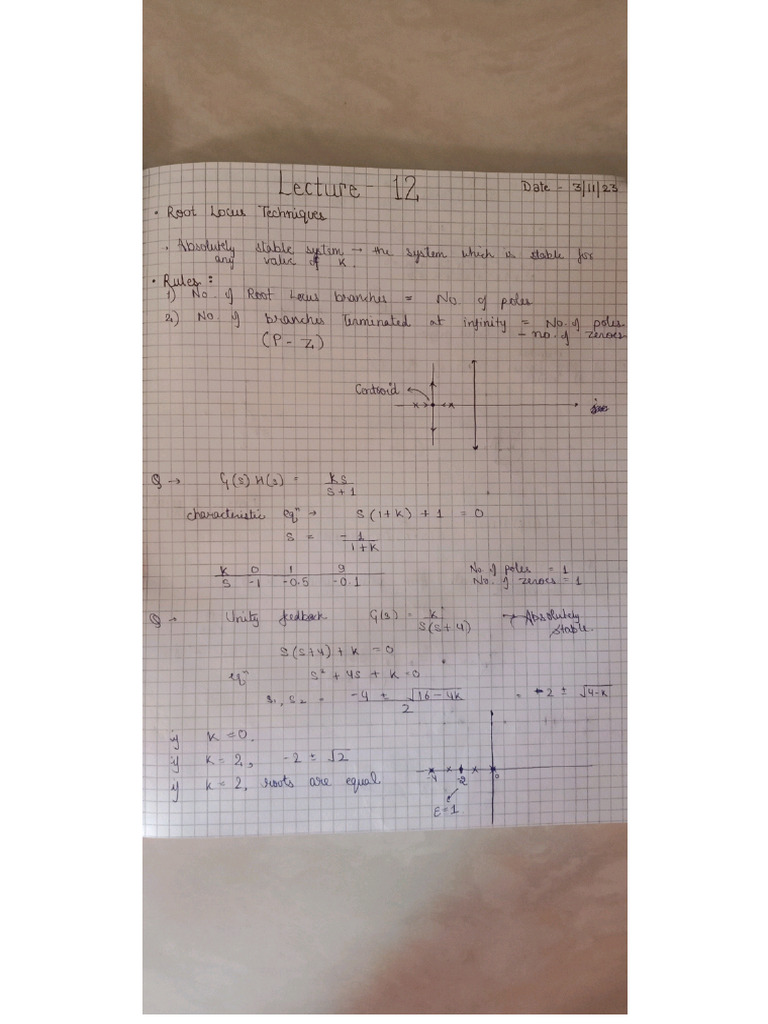 Lecture - 12
Date - 3/11/23
• Root Locus Techniques
• Absolutely stable system → the system which is stable for
any value of K.
• Rules :
1) No. of Root Locus branches = No. of poles
2) No. of branches Terminated at infinity = No. of poles
- no. of zeroes
(P - Z)
Centroid
jω
Q → G(s) H(s) = KS / S + 1
characteristic eqⁿ → S(1+K) + 1 = 0
S = - 1 / 1+K
K 0 1 9
S -1 -0.5 -0.1
No. of poles = 1
No. of zeroes = 1
Q → Unity feedback G(s) = K / S(S+4) → Absolutely
stable.
S(S+4) + K = 0
eqⁿ S² + 4S + K = 0
S₁, S₂ = -4 ± √16 - 4K / 2 = -2 ± √4-K
if K = 0.
if K = 2, -2 ± √2
if K = 2, roots are equal
-4 -2 0
ε = 1.